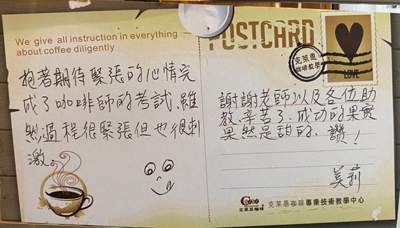 We give all instruction in everything
about coffee diligently
抱著期待緊張的心情完
成了咖啡師的考試,雖
然過程很緊張但也很刺
激。
POSTCARD
克萊恩
咖啡教學
LOVE
謝謝老師以及各位助
教辛苦了,成功的果實
果然是甜的,讚!
美莉
克萊恩咖啡
克萊恩咖啡專業技術教學中心